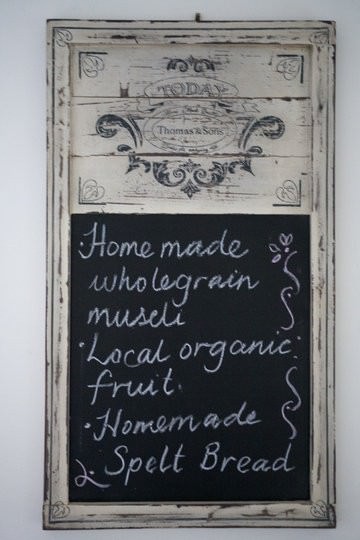 TODAY
Thomas & Sons
· Home made
wholegrain
muscli
· Local organic
fruit.
· Homemade
& Spelt Bread